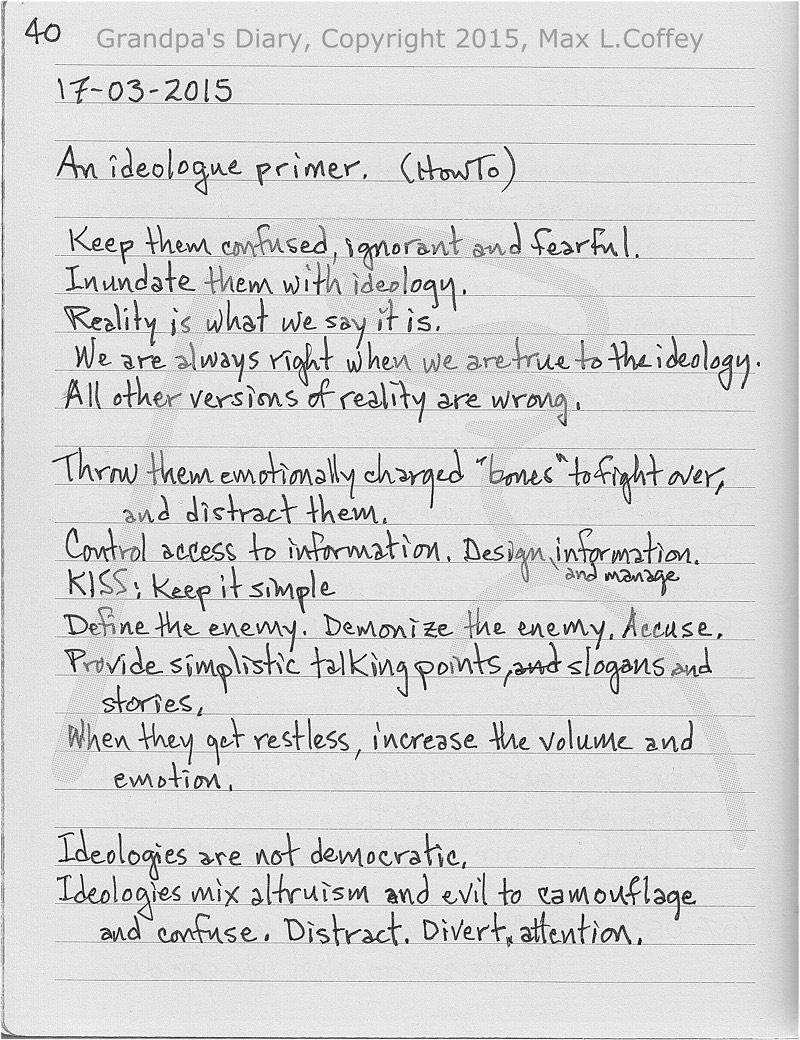 40
Grandpa's Diary, Copyright 2015, Max L.Coffey
17-03-2015
An ideologue primer. (HowTo)
Keep them confused, ignorant and fearful.
Inundate them with ideology.
Reality is what we say it is.
We are always right when we are true to the ideology.
All other versions of reality are wrong.
Throw them emotionally charged "bones" to fight over,
and distract them.
Control access to information. Design and manage information.
KISS: Keep it simple
Define the enemy. Demonize the enemy. Accuse.
Provide simplistic talking points, and slogans and
stories.
When they get restless, increase the volume and
emotion.
Ideologies are not democratic.
Ideologies mix altruism and evil to camouflage
and confuse. Distract. Divert attention.